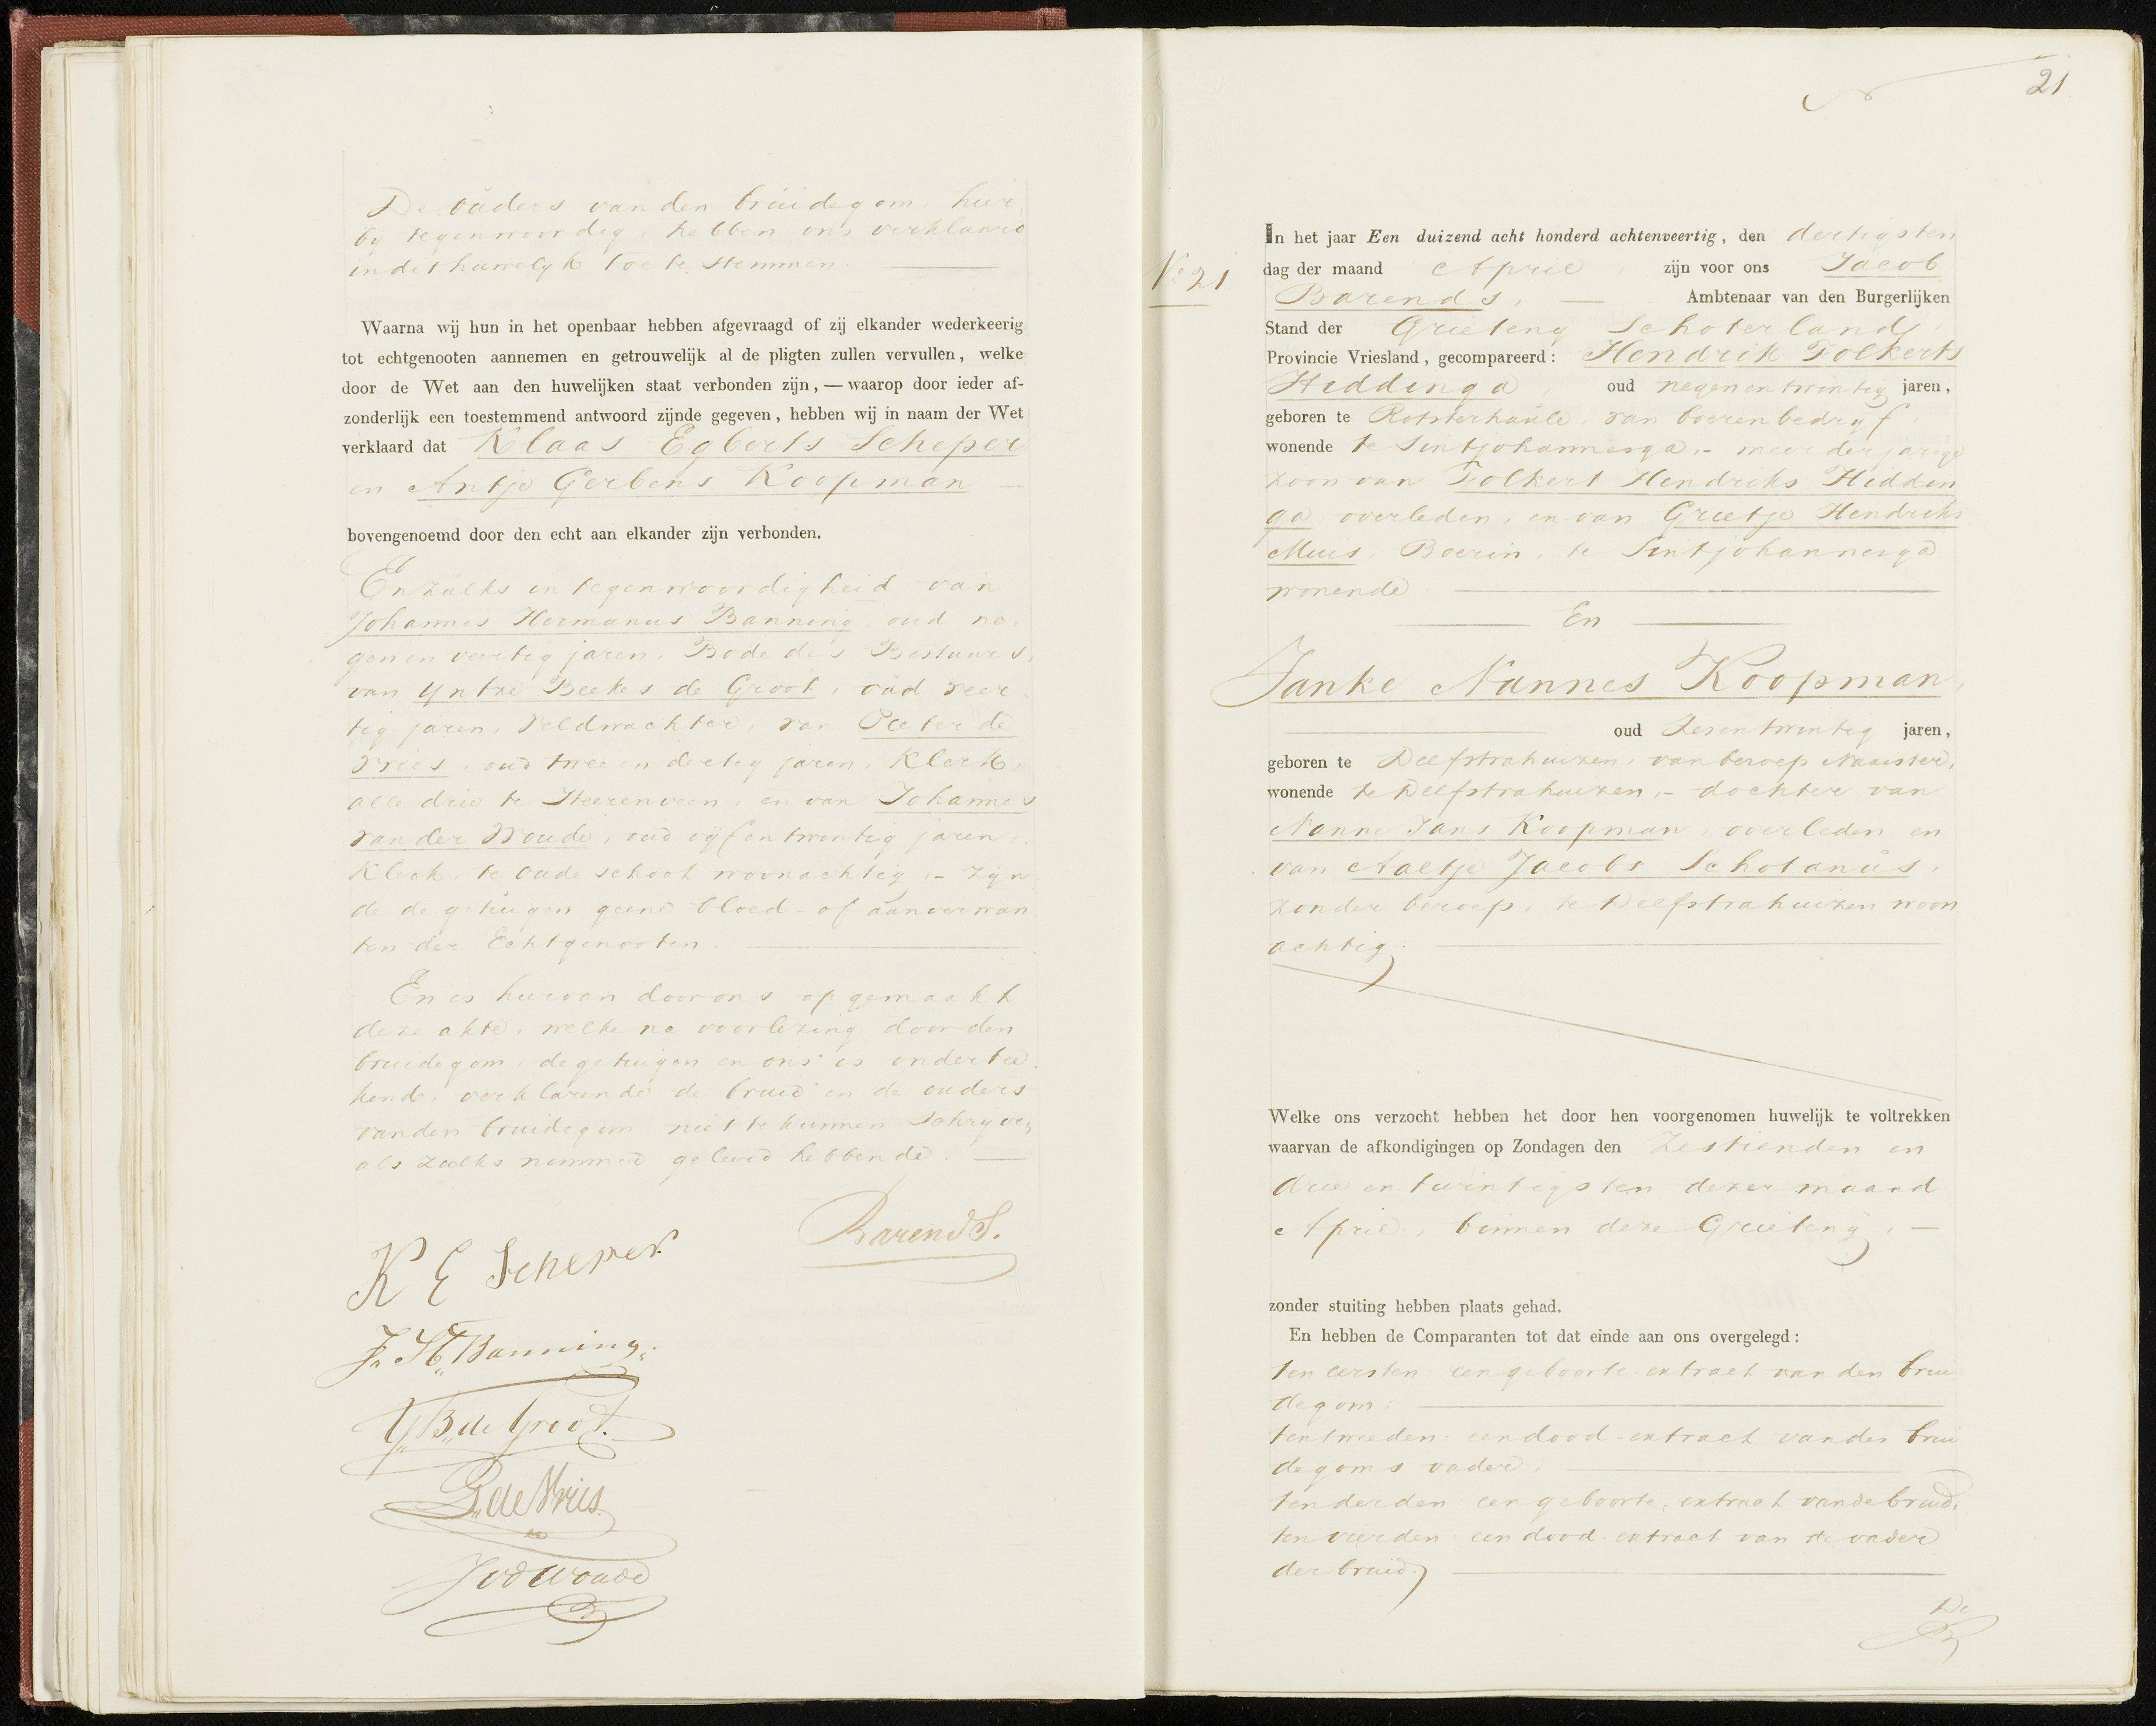 De ouders van den bruidegom, hier
bij tegenwoordig, hebben ons verklaard
in dit huwelyk toe te stemmen.
Waarna wij hun in het openbaar hebben afgevraagd of zij elkander wederkeerig
tot echtgenooten aannemen en getrouwelijk al de pligten zullen vervullen, welke
door de Wet aan den huwelijken staat verbonden zijn, — waarop door ieder af-
zonderlijk een toestemmend antwoord zijnde gegeven, hebben wij in naam der Wet
verklaard dat Klaas Egberts Scheper
en Antje Gerbens Koopman —
bovengenoemd door den echt aan elkander zijn verbonden.
En zulks in tegenwoordigheid van
Johannes Hermanus Banning, oud ne-
gen en veertig jaren, Bode des Bestuurs,
van Yntze Beekes de Groot, oud veer
tig jaren, Veldwachter, van Pieter de
Vries, oud twee en dertig jaren, Klerk,
alle drie te Heerenveen, en van Johannes
van der Woude, oud vijf en twintig jaren,
Klerk, te Oudeschoot woonachtig, – zijn
de de getuigen geene bloed- of aanverwan
ten der Echtgenooten.
En is hiervan door ons opgemaakt
deze akte, welke na voorlezing door den
bruidegom, de getuigen en ons is onderteе
kend, verklarende de bruid en de ouders
van den bruidegom niet te kunnen schryven
als zulks nimmer geleerd hebbende. —
Barends.
K E Scheper
J. H. Banning.
Y B de Groot.
P. de Vries
J v d Woude
21
No 21
In het jaar Een duizend acht honderd achtenveertig, den dertigsten
dag der maand April, zijn voor ons Jacob
Barends, — Ambtenaar van den Burgerlijken
Stand der Grieteny Schoterland,
Provincie Vriesland, gecompareerd: Hendrik Folkerts
Hiddinga, oud negenentwintig jaren,
geboren te Rotsterhaule, van boerenbedryf,
wonende te Sintjohannesga, – meerderjarige
zoon van Folkert Hendriks Hiddin
ga, overleden, en van Grietje Hendriks
Muis, Boerin, te Sintjohannesga
wonende
En
Janke Nannes Koopman,
oud zesentwintig jaren,
geboren te Delfstrahuizen, van beroep Naaister,
wonende te Delfstrahuizen, – dochter van
Nanne Jans Koopman, overleden en
van Aaltje Jacobs Schotanus,
zonder beroep, te Delfstrahuizen woon
achtig.
Welke ons verzocht hebben het door hen voorgenomen huwelijk te voltrekken
waarvan de afkondigingen op Zondagen den Zestienden en
drie en twintigsten dezer maand
April, binnen deze Grieteny, —
zonder stuiting hebben plaats gehad.
En hebben de Comparanten tot dat einde aan ons overgelegd:
ten eersten een geboorte-extract van den brui
degom;
ten tweeden een dood-extract van des brui
degoms vader;
ten derden een geboorte-extract van de bruid,
ten vierden een dood-extract van de vader
der bruid.
De